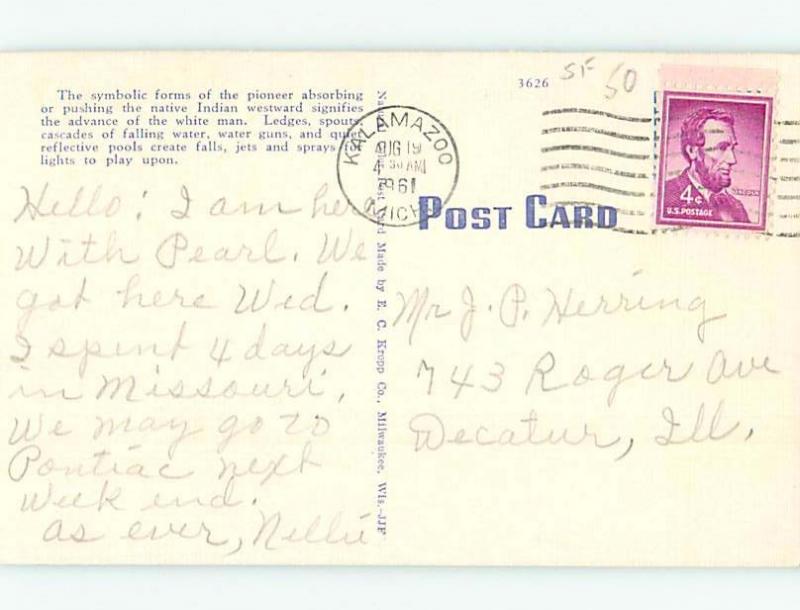 The symbolic forms of the pioneer absorbing
or pushing the native Indian westward signifies
the advance of the white man. Ledges, spouts,
cascades of falling water, water guns, and quiet
reflective pools create falls, jets and sprays for
lights to play upon.
Hello! I am here
With Pearl. We
got here Wed.
I spent 4 days
in Missouri,
We may go to
Pontiac next
week end.
as ever, Nellie
Post Card Made by E. C. Kropp Co., Milwaukee, Wis.-JJF
3626
SF 50
KALAMAZOO
AUG 19
4 30 AM
1961
MICH
POST CARD
LINCOLN
4¢
U.S. POSTAGE
Mr J. P. Herring
743 Roger Ave
Decatur, Ill,